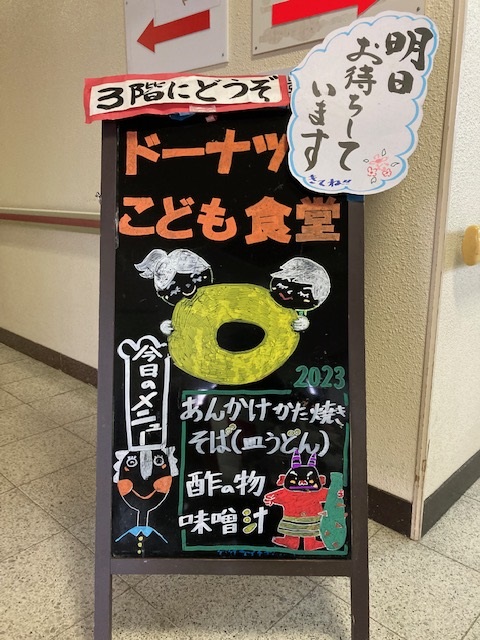 3階にどうぞ
明日
お待ちして
います
きてね!!
ドーナツ
こども食堂
2023
今日のメニュー
あんかけかた焼き
そば(皿うどん)
酢の物
味噌汁